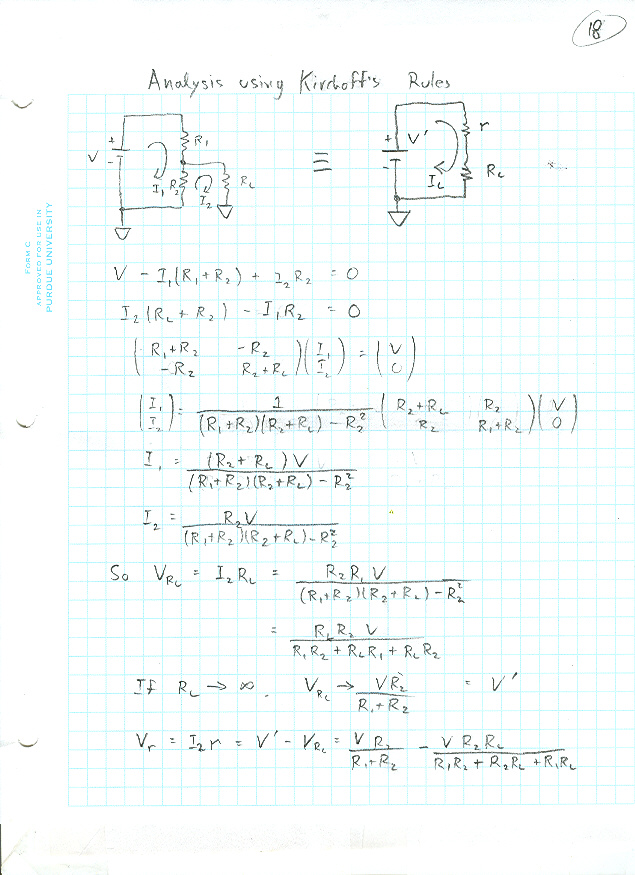 18
Analysis using Kirchoff's Rules
V + - I₁ R₁ R₂ I₂ R_L ≡ + - V' I_L r R_L
FORM C
APPROVED FOR USE IN
PURDUE UNIVERSITY
V - I₁(R₁+R₂) + I₂R₂ = 0
I₂(R_L + R₂) - I₁R₂ = 0
(R₁+R₂ -R₂; -R₂ R₂+R_L)(I₁; I₂) = (V; 0)
(I₁; I₂) = 1/((R₁+R₂)(R₂+R_L) - R₂²) · (R₂+R_L R₂; R₂ R₁+R₂)(V; 0)
I₁ = (R₂+R_L)V / ((R₁+R₂)(R₂+R_L) - R₂²)
I₂ = R₂V / ((R₁+R₂)(R₂+R_L) - R₂²)
So V_{R_L} = I₂R_L = R₂R_L V / ((R₁+R₂)(R₂+R_L) - R₂²)
= R_L R₂ V / (R₁R₂ + R_LR₁ + R_LR₂)
If R_L → ∞, V_{R_L} → VR₂ / (R₁+R₂) = V'
V_r = I₂r = V' - V_{R_L} = V R₂ / (R₁+R₂) - V R₂R_L / (R₁R₂ + R₂R_L + R₁R_L)